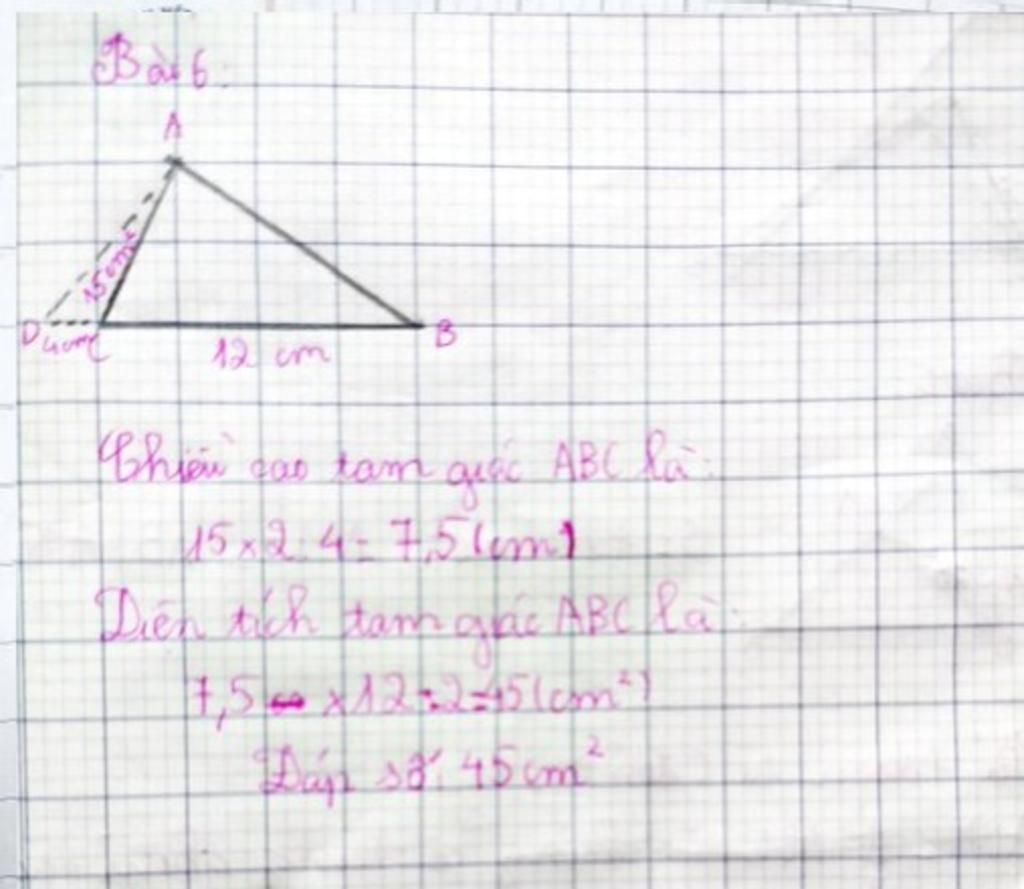 Bài 6:
A
15cm²
D 4cm C
12 cm
B
Chiều cao tam giác ABC là:
15 × 2 : 4 = 7,5 (cm)
Diện tích tam giác ABC là:
7,5 × 12 : 2 = 45 (cm²)
Đáp số: 45 cm²